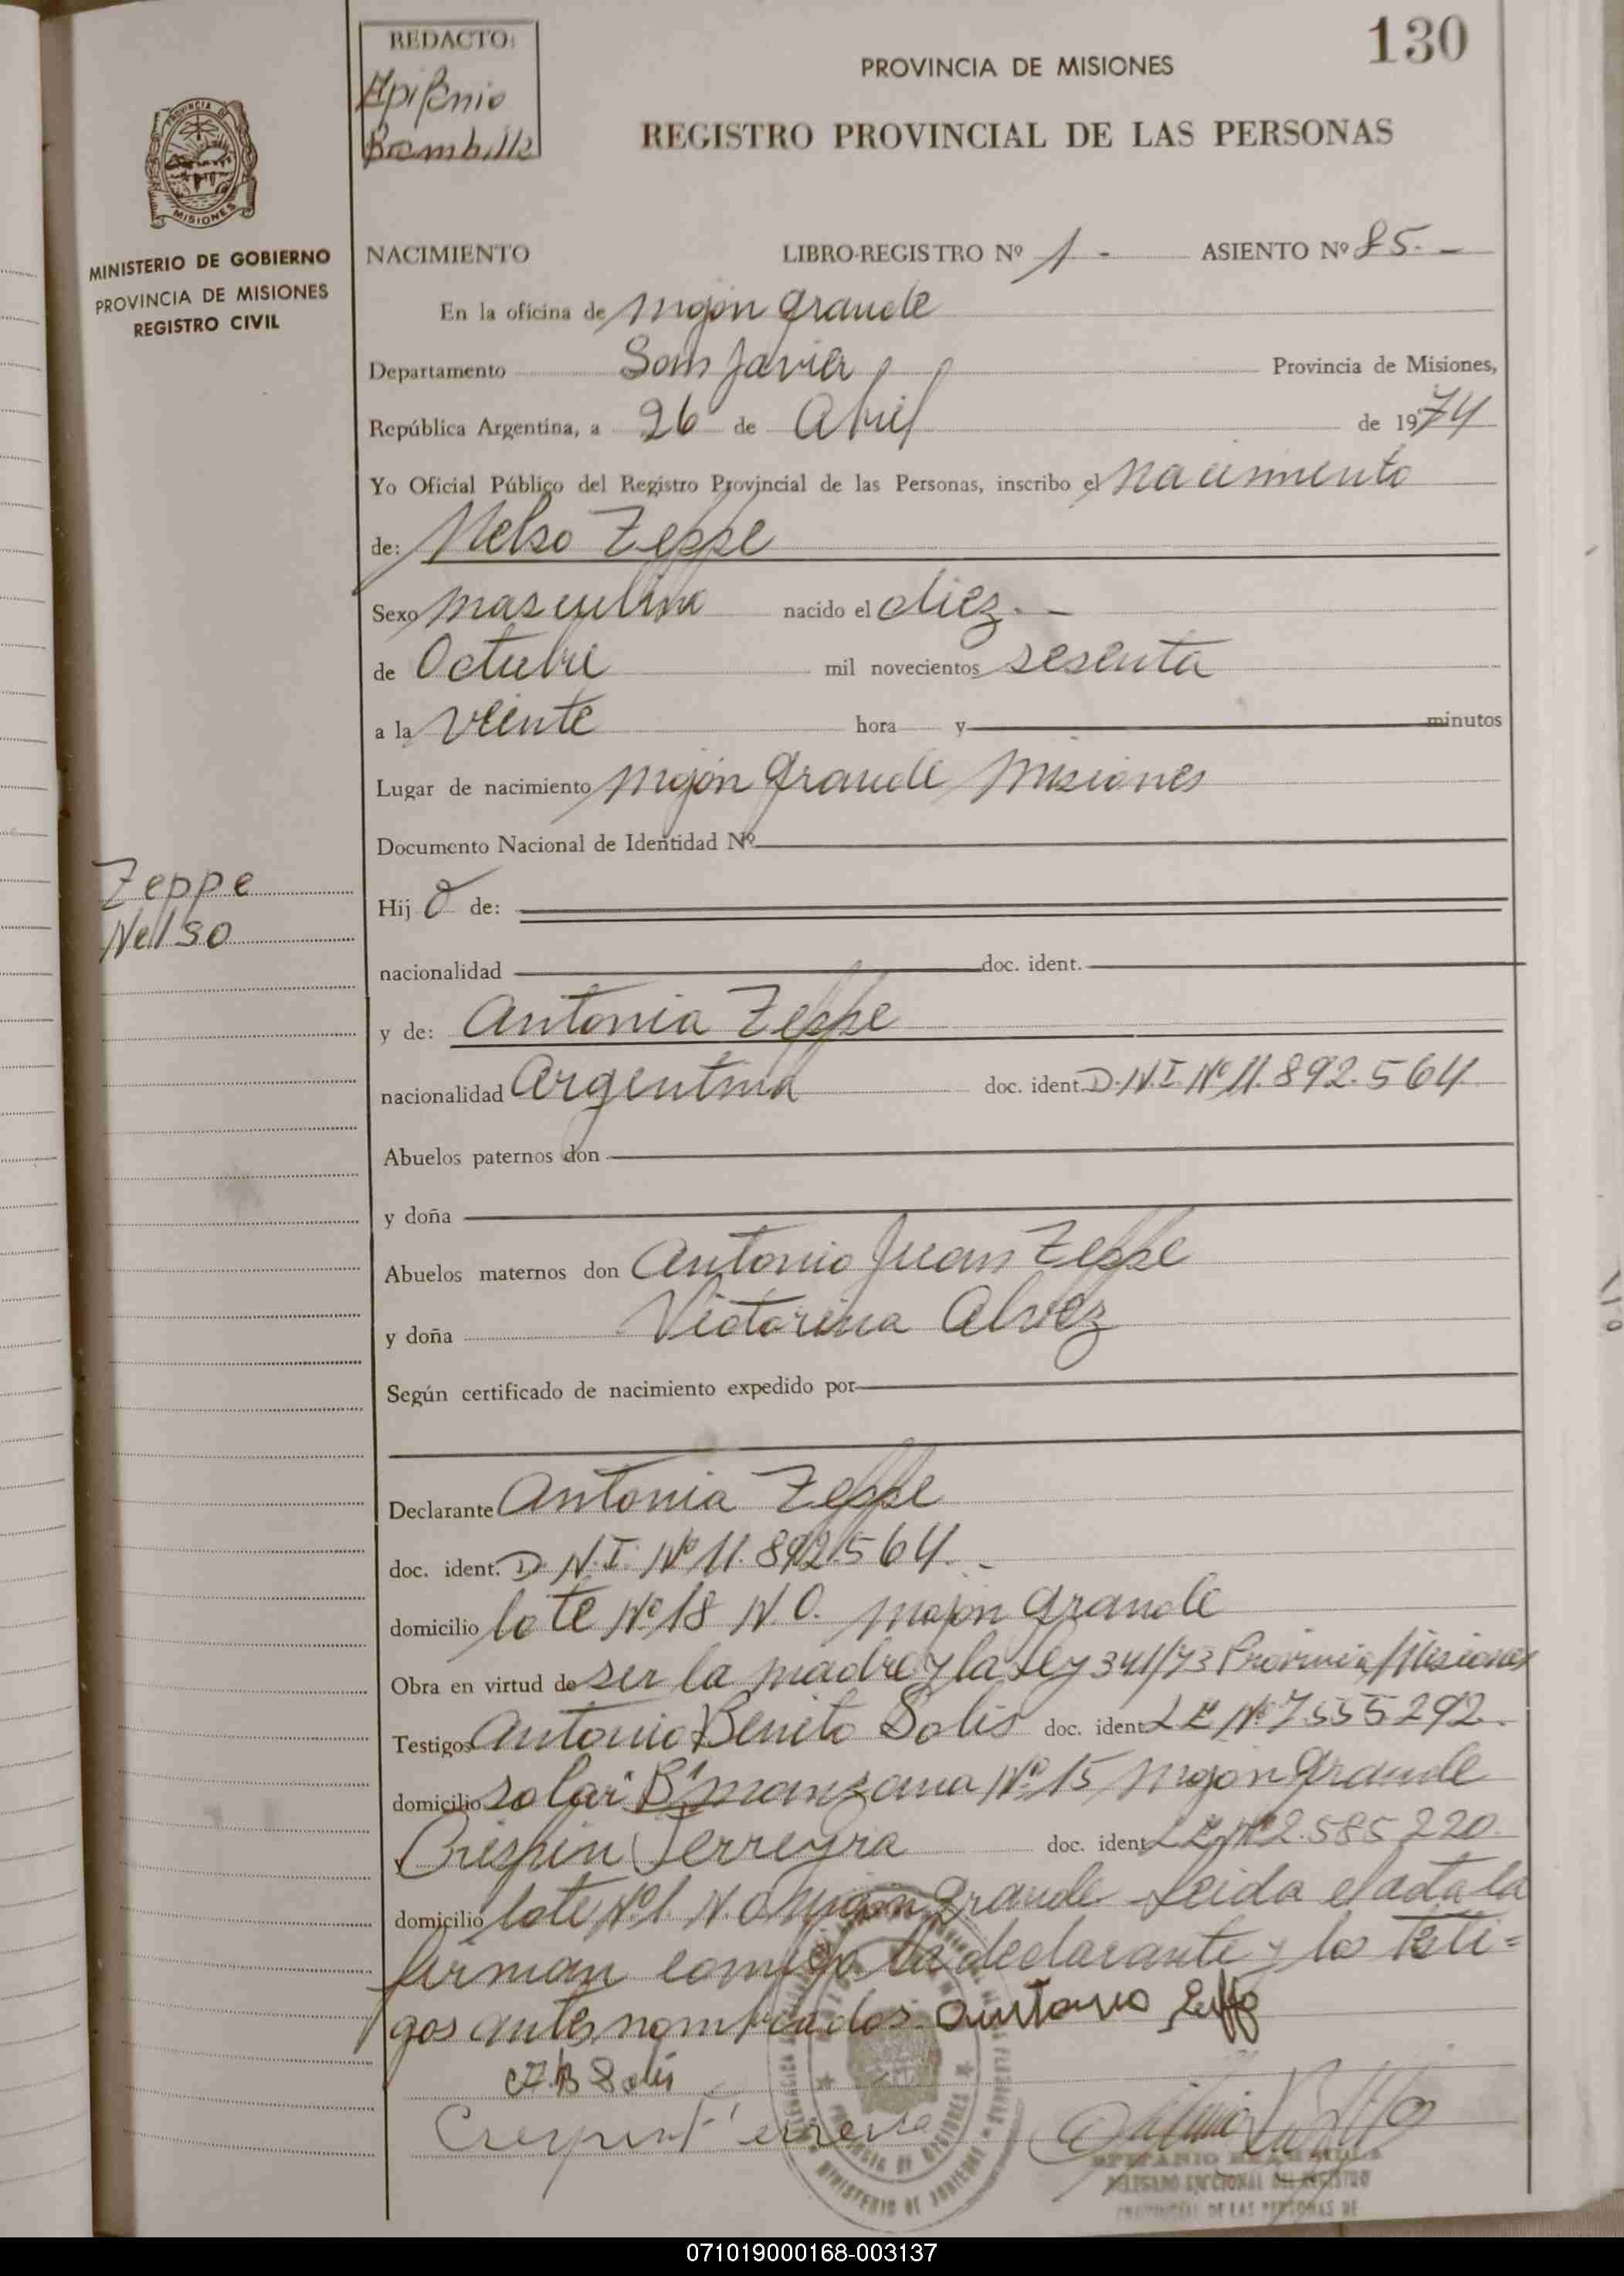 130
REDACTO:
Epifanio
Brambilla
PROVINCIA DE MISIONES
REGISTRO PROVINCIAL DE LAS PERSONAS
PROVINCIA DE
MISIONES
MINISTERIO DE GOBIERNO
PROVINCIA DE MISIONES
REGISTRO CIVIL
NACIMIENTO LIBRO-REGISTRO Nº 1 - ASIENTO Nº 85. -
En la oficina de Mojón Grande
Departamento San Javier Provincia de Misiones,
República Argentina, a 26 de Abril de 1974
Yo Oficial Público del Registro Provincial de las Personas, inscribo el nacimiento
de: Nelso Zeppe
Sexo masculino nacido el diez. -
de Octubre mil novecientos sesenta
a la veinte hora y minutos
Lugar de nacimiento Mojón Grande Misiones
Documento Nacional de Identidad Nº
Zeppe
Nelso
Hij o de:
nacionalidad doc. ident.
y de: Antonia Zeppe
nacionalidad Argentina doc. ident. D.N.I. Nº 11.892.564
Abuelos paternos don
y doña
Abuelos maternos don Antonio Juan Zeppe
y doña Victorina Alvez
Según certificado de nacimiento expedido por
Declarante Antonia Zeppe
doc. ident. D.N.I. Nº 11.892.564. -
domicilio lote Nº 18 N.O. Mojón Grande
Obra en virtud de ser la madre y la Ley 341/73 Provincia/Misiones
Testigos Antonio Benito Solis doc. ident. L E Nº 7.555292.
domicilio solar "B" manzana Nº 15 Mojón Grande
Crispin Ferreyra doc. ident. L E Nº 2.585220.
domicilio lote Nº 1 N.O. Mojón Grande leida el acta la
firman conmigo la declarante y los testi=
gos antes nombrados.
A.B Solis
EPIFANIO BRAMBILLA
DELEGADO SECCIONAL DEL REGISTRO
PROVINCIAL DE LAS PERSONAS DE
PROVINCIA DE MISIONES
MINISTERIO DE GOBIERNO
071019000168-003137